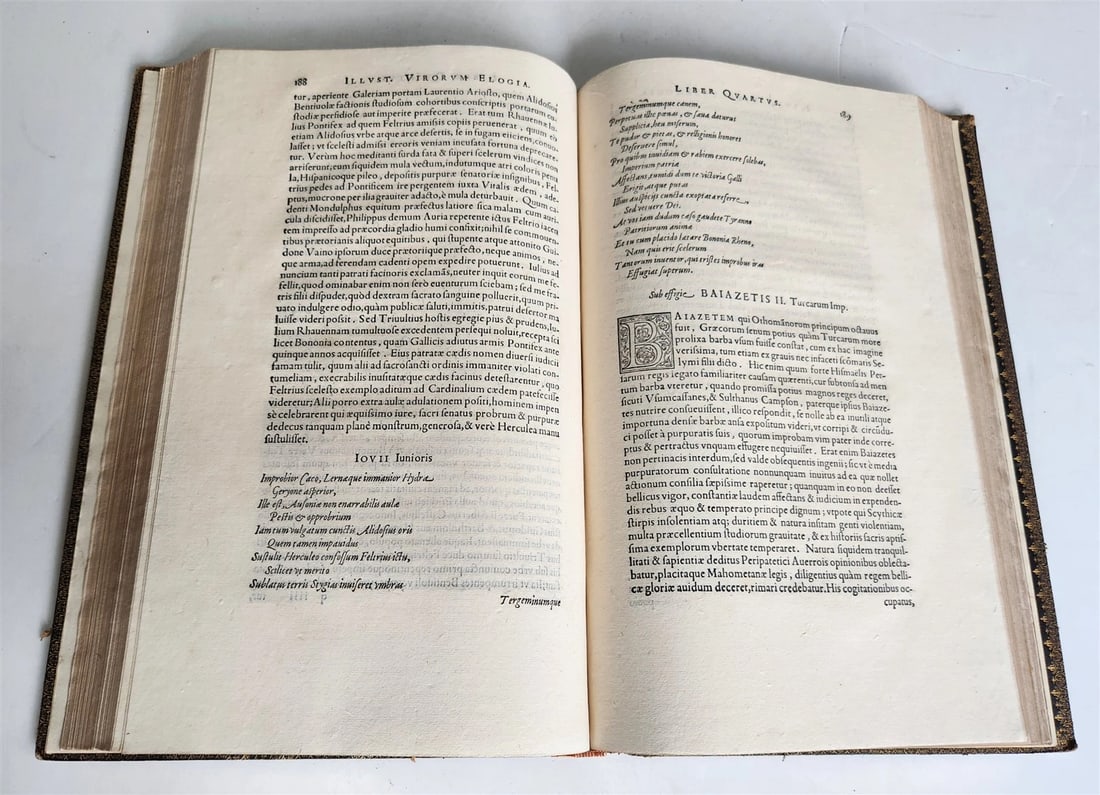 188 ILLVST. VIRORVM ELOGIA.
tur, aperiente Galeriam portam Laurentio Ariosto, quem Alidosius
Bentiuolæ factionis studiosum cohortibus conscriptis portarum cu-
stodiæ perfidiose aut imperite præfecerat. Erat tum Rhauennæ Iu-
lius Pontifex ad quem Feltrius amissis copiis peruenerat, quum eò
etiam Alidosius vrbe atque arce desertis, se in fugam eiiciens, conuo-
lasset; vt scelesti admissi errores veniam incusata fortuna deprecare-
tur. Verùm hoc meditanti surda fata & superi scelerum vindices non
arriserunt; eum siquidem mula vectum, indutumque atri coloris pænu
la, Hispanicoque pileo, depositis purpuræ senatoriæ insignibus, Fel-
trius pedes ad Pontificem ire pergentem iuxta Vitalis ædem, ade-
ptus, mucrone per ilia grauiter adacto, è mula deturbauit. Quum ca-
denti Mondulphus equitum præfectus latiore sica malam cum auri-
cula discidisset, Philippus demum Auria repertente ictus Feltrio iacen
tem impresso ad præcordia gladio humi confixit; nihil se commouen-
tibus prætorianis aliquot equitibus, qui stupente atque attonito Gui-
done Vaino ipsorum duce prætoriique præfecto, neque animos, ne-
que arma, ad ferendam cadenti opem expedire potuerunt. Iulius ad
nuncium tanti patrati facinoris exclamās, neuter inquit eorum me fe-
fellit, quod ominabar enim non serò euenturum sciebam; sed me fra-
tris filii dispudet, quòd dexteram sacrato sanguine polluerit, quum pri-
uato indulgere odio, quàm publicæ saluti, immitis, patrui desertor ma
luisse videri possit. Sed Triuulnius hostis egregie pius & prudens, Iu-
lium Rhauennam tumultuose excedentem persequi noluit, recepta sci
licet Bononia contentus, quam Gallicis adiutus armis Pontifex ante
quinque annos acquisisset. Eius patratæ cædis nomen diuersi iudicii
famam tulit, quum alii ad sacrosancti ordinis immaniter violati con-
tumeliam, execrabilis inusitatæque cædis facinus detestarentur, quo
Feltrius scelesto exemplo aditum ad Cardinalium cædem patefecisse
videretur; Alii porro extra aulæ adulationem positi, hominem impen
sè celebrarent qui æquissimo iure, sacri senatus probrum & purpuræ
dedecus tanquam planè monstrum, generosa, & verè Herculea manu
sustulisset.
IOVII Iunioris
Improbior Caco, Lernaque immanior Hydra
Geryone asperior,
Ille est, Ausoniæ non enarrabilis aulæ
Pestis & opprobrium
Iam tum vulgatum cunctis Alidosius oris
Quem tamen impauidus
Sustulit Herculeo confossum Feltrius ictu,
Scilicet vt merito
Sublatus terris Stygias inuiseret vmbras
Tergeminumque
LIBER QVARTVS.
Tergeminumque canem,
Perpetuas illic pœnas, & sæua daturus
Supplicia, heu miserum,
Tc pudor & pietas, & religionis honores
Deseruere simul,
Pro quibus inuidiam & rabiem exercere solebas,
Imperium patriæ
Affectans, tumidi dum te victoria Galli
Erigit, atque putat
Illius auspiciis cuncta exoptata referre,
Sed vetuere Dei.
At vos iam dudum cæso gaudete Tyranno
Patritiorum animæ
Et tu cum placido lætare Bononia Rheno,
Nam quis erit scelerum
Tantorum inuentor, qui tristes improbus iras
Effugiat superum.
Sub effigie BAIAZETIS II. Turcarum Imp.
BAIAZETEM qui Othomānorum principum octauus
fuit, Græcorum senum potius quàm Turcarum more
prolixa barba vsum fuisse constat, cum ex hac imagine
verissima, tum etiam ex grauis nec infaceti scōmatis Se-
lymi filii dicto. Hic enim quum forte Hismaelis Per-
sarum regis legato familiariter causam quærenti, cur subtonsa ad men
tum barba vteretur, quando promissa potius magnos reges deceret,
sicuti Vsumcassanes, & Sulthanus Campson, paterque ipsius Baiaze-
tes nutrire consueuissent, illico respondit, se nolle ab ea inutili atque
importuna densæ barbæ ansa expositum videri, vt corripi & circūdu-
ci posset à purpuratis suis, quorum improbam vim pater inde corre-
ptus & pertractus vnquam effugere nequiuisset. Erat enim Baiazetes
non pertinacis interdum, sed valde obsequentis ingenii; sic vt è media
purpuratorum consultatione nonnunquam inuitus ad ea quæ nollet
actionum consilia sæpissime raperetur; quanquam in eo non deesset
bellicus vigor, constantiæ laudem affectans & iudicium in expenden-
dis rebus æquo & temperato principe dignum; vtpote qui Scythicæ
stirpis insolentiam atq; duritiem & natura insitam genti violentiam,
multa præcellentium studiorum grauitate, & ex historiis sacris aptis-
sima exemplorum vbertate temperaret. Natura siquidem tranquil-
litati & sapientiæ deditus Peripatetici Auerrois opinionibus oblecta-
batur, placitaque Mahometanæ legis, diligentius quàm regem belli-
cæ gloriæ auidum deceret, rimari credebatur. His cogitationibus oc-
cupatus,